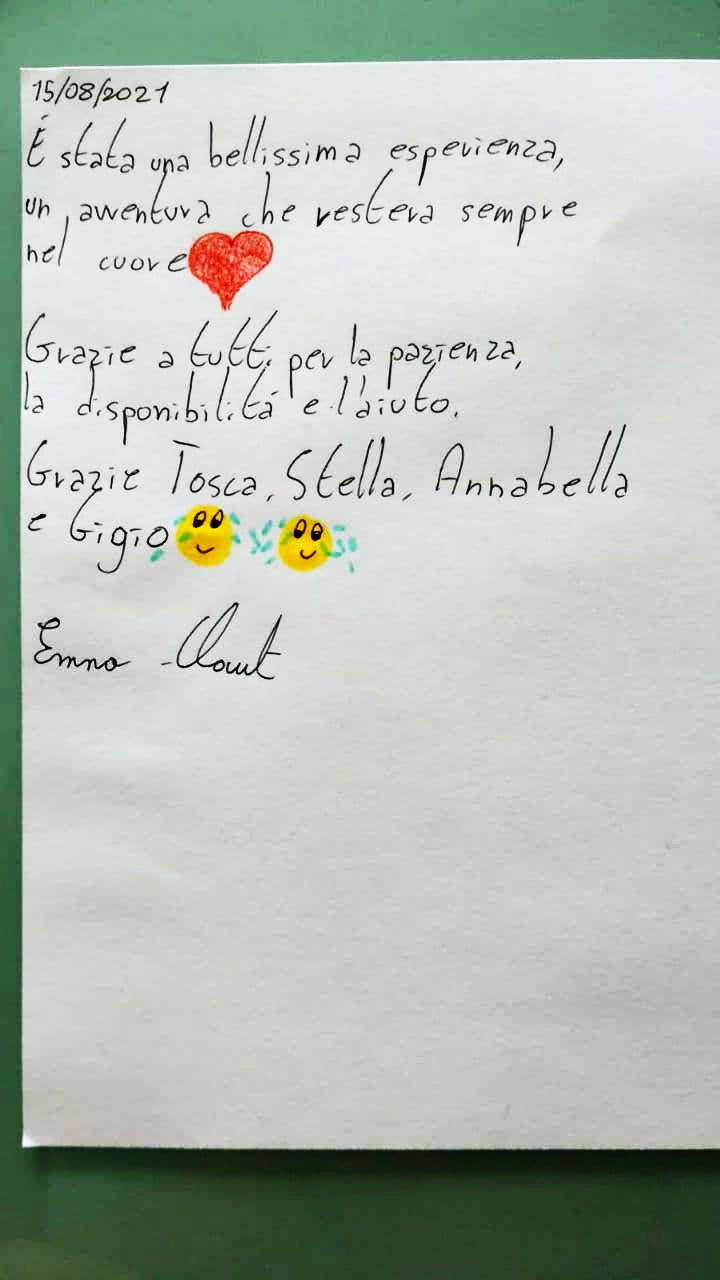 15/08/2021
É stata una bellissima esperienza,
un, avventura che resterà sempre
nel cuore
Grazie a tutti per la pazienza,
la disponibilitá e l'aiuto.
Grazie Tosca, Stella, Annabella
e Gigio
Emma